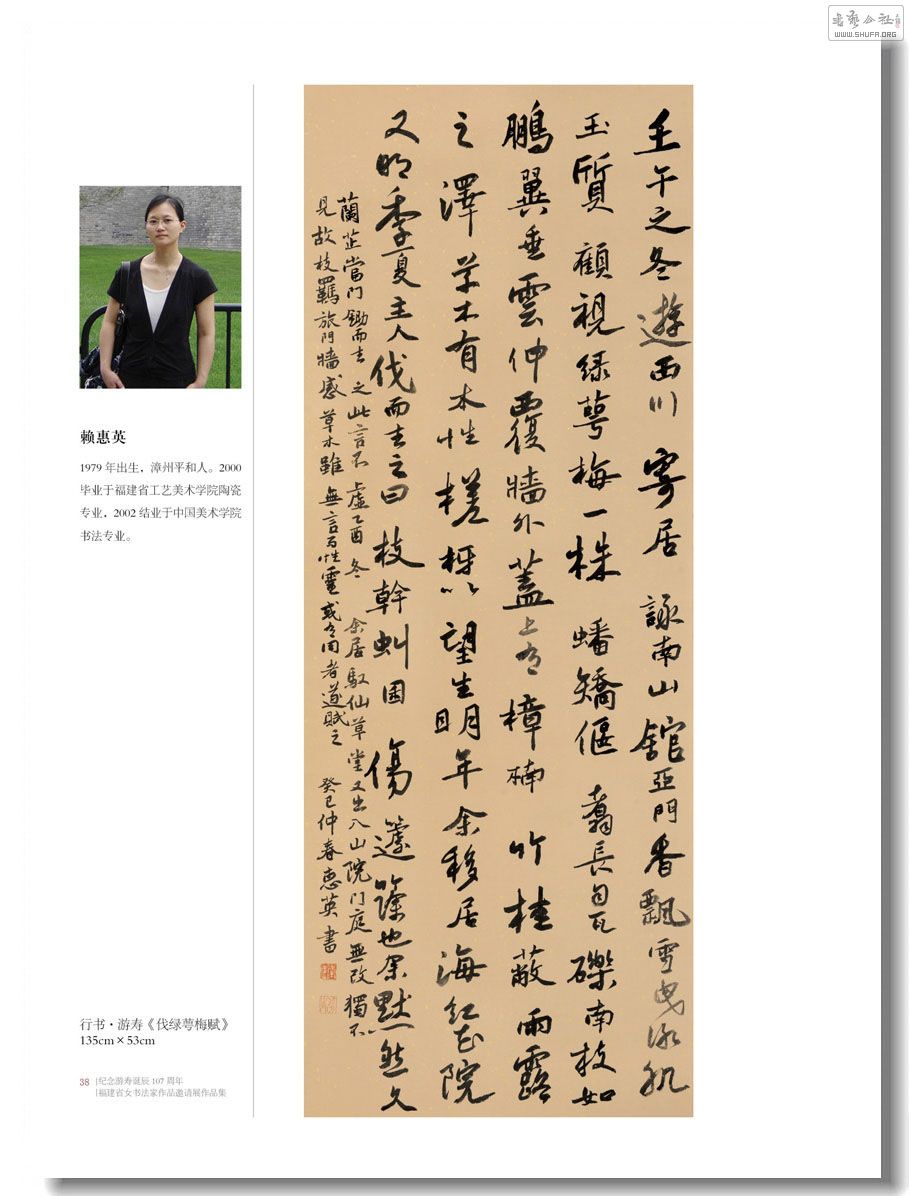 書藝公社
WWW.SHUFA.ORG
壬午之冬遊西川寄居詠南山館亞門香飄雪曳泳肌
玉質顧視綠萼梅一株蟠矯偃蹇長自瓦礫南枝如
鵬翼垂雲仲覆牆外蓋上有樟楠竹桂蔽雨露
之澤草木有本性槎枒以望生明年余移居海紅花院
又明季夏主人伐而去之曰枝幹虯困傷籧篨也余默然久
蘭芷當門鋤而去之此言不虛乙酉冬余居馭仙草堂又出入山院門庭無改獨不
見故枝羈旅門牆感草木雖無言而性靈或有同者遂賦之癸巳仲春惠英書
赖惠英
1979 年出生，漳州平和人。2000
毕业于福建省工艺美术学院陶瓷
专业，2002 结业于中国美术学院
书法专业。
行书·游寿《伐绿萼梅赋》
135cm×53cm
38
纪念游寿诞辰 107 周年
福建省女书法家作品邀请展作品集